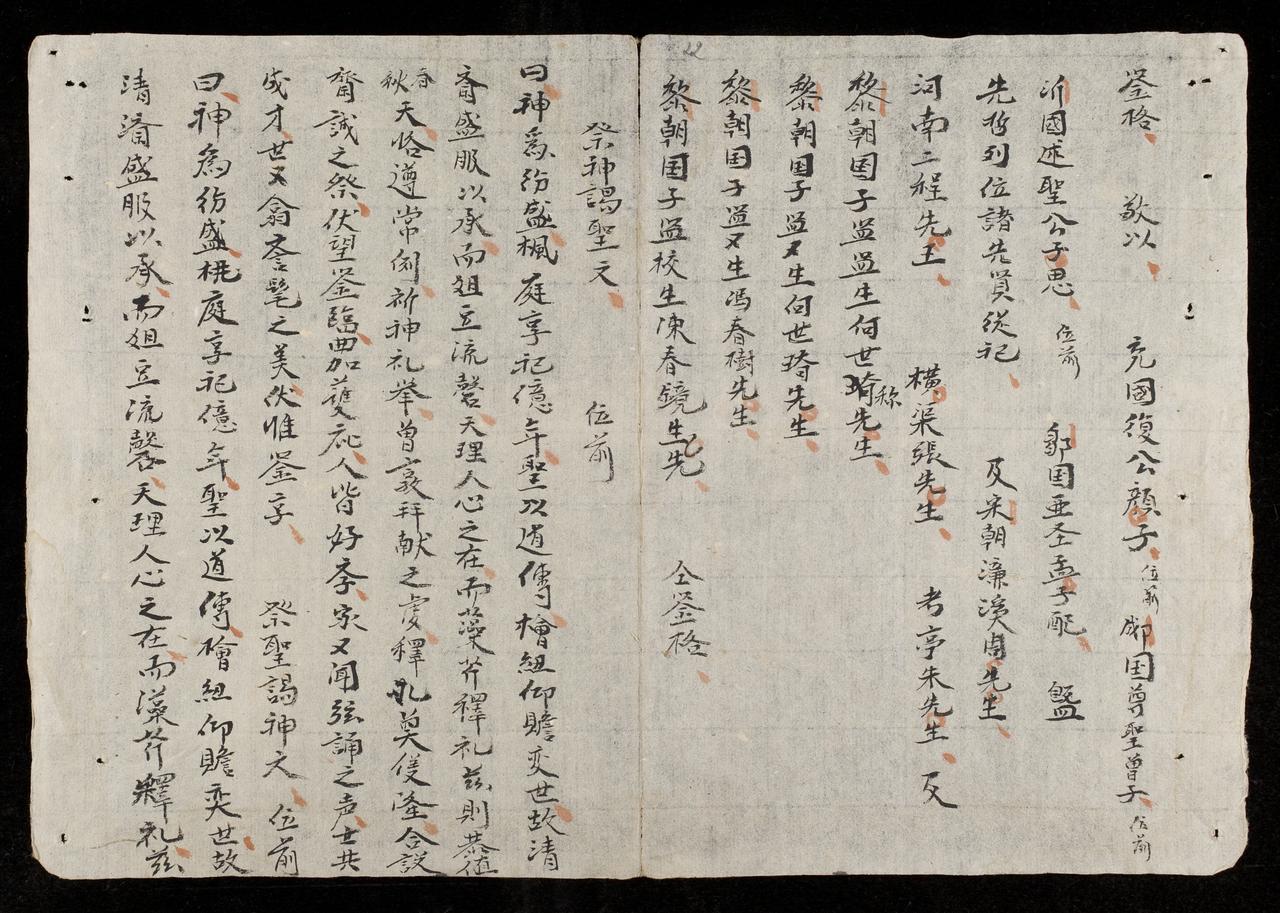 鉴格 敬以 兖國復公顔子位前 郕国尊聖曽子位前
沂國述聖公子思位前 鄒国亜圣孟子配 曁
先哲列位諸先賢従祀 及宋朝濓溪周先生
河南二程先王 横渠張先生 考亭朱先生 及
黎朝国子監監生何世㻛称先生
黎朝国子監又生何世琦先生
黎朝国子監又生馮春樹先生
黎朝国子監校生陳春鏡生先 仝鉴格
祭神謁聖文 位前
曰神爲 盛楓庭享祀億年聖以道傳檜 仰瞻奕世故清
斎盛服以承而俎豆流馨天理人心之在而藻芹釋礼兹則恭值
春秋天恪遵常例祈神礼举曽 拜献之虔釋礼奠 隆合設
齋誠之祭伏望鉴臨曲加護庇人皆好李家又聞弦誦之声士共
成才世又翕 髦之美伏惟鉴享 祭聖謁神文 位前
曰神爲 盛桃庭享祀億年聖以道傳檜 仰瞻奕世故
清斎盛服以承而俎豆流馨天理人心之在而藻芹釋礼兹
22